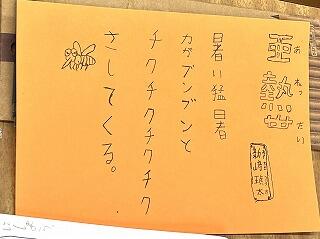 亜熱帯
あねったい
暑い猛暑
カがブンブンと
チクチクチクチク
さしてくる。